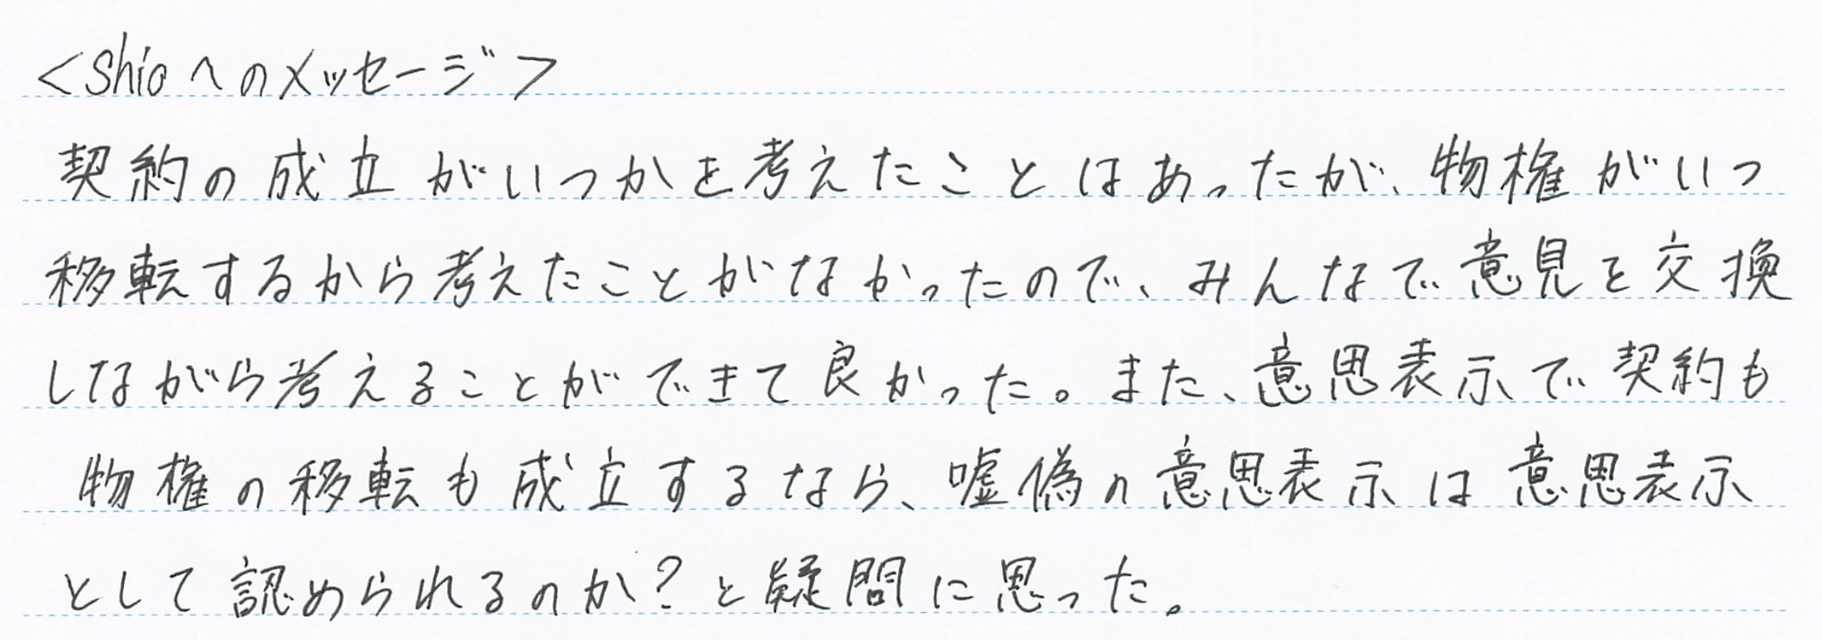 <Shioへのメッセージ>
契約の成立がいつかを考えたことはあったが、物権がいつ
移転するから考えたことがなかったので、みんなで意見を交換
しながら考えることができて良かった。また、意思表示で契約も
物権の移転も成立するなら、嘘偽の意思表示は意思表示
として認められるのか?と疑問に思った。